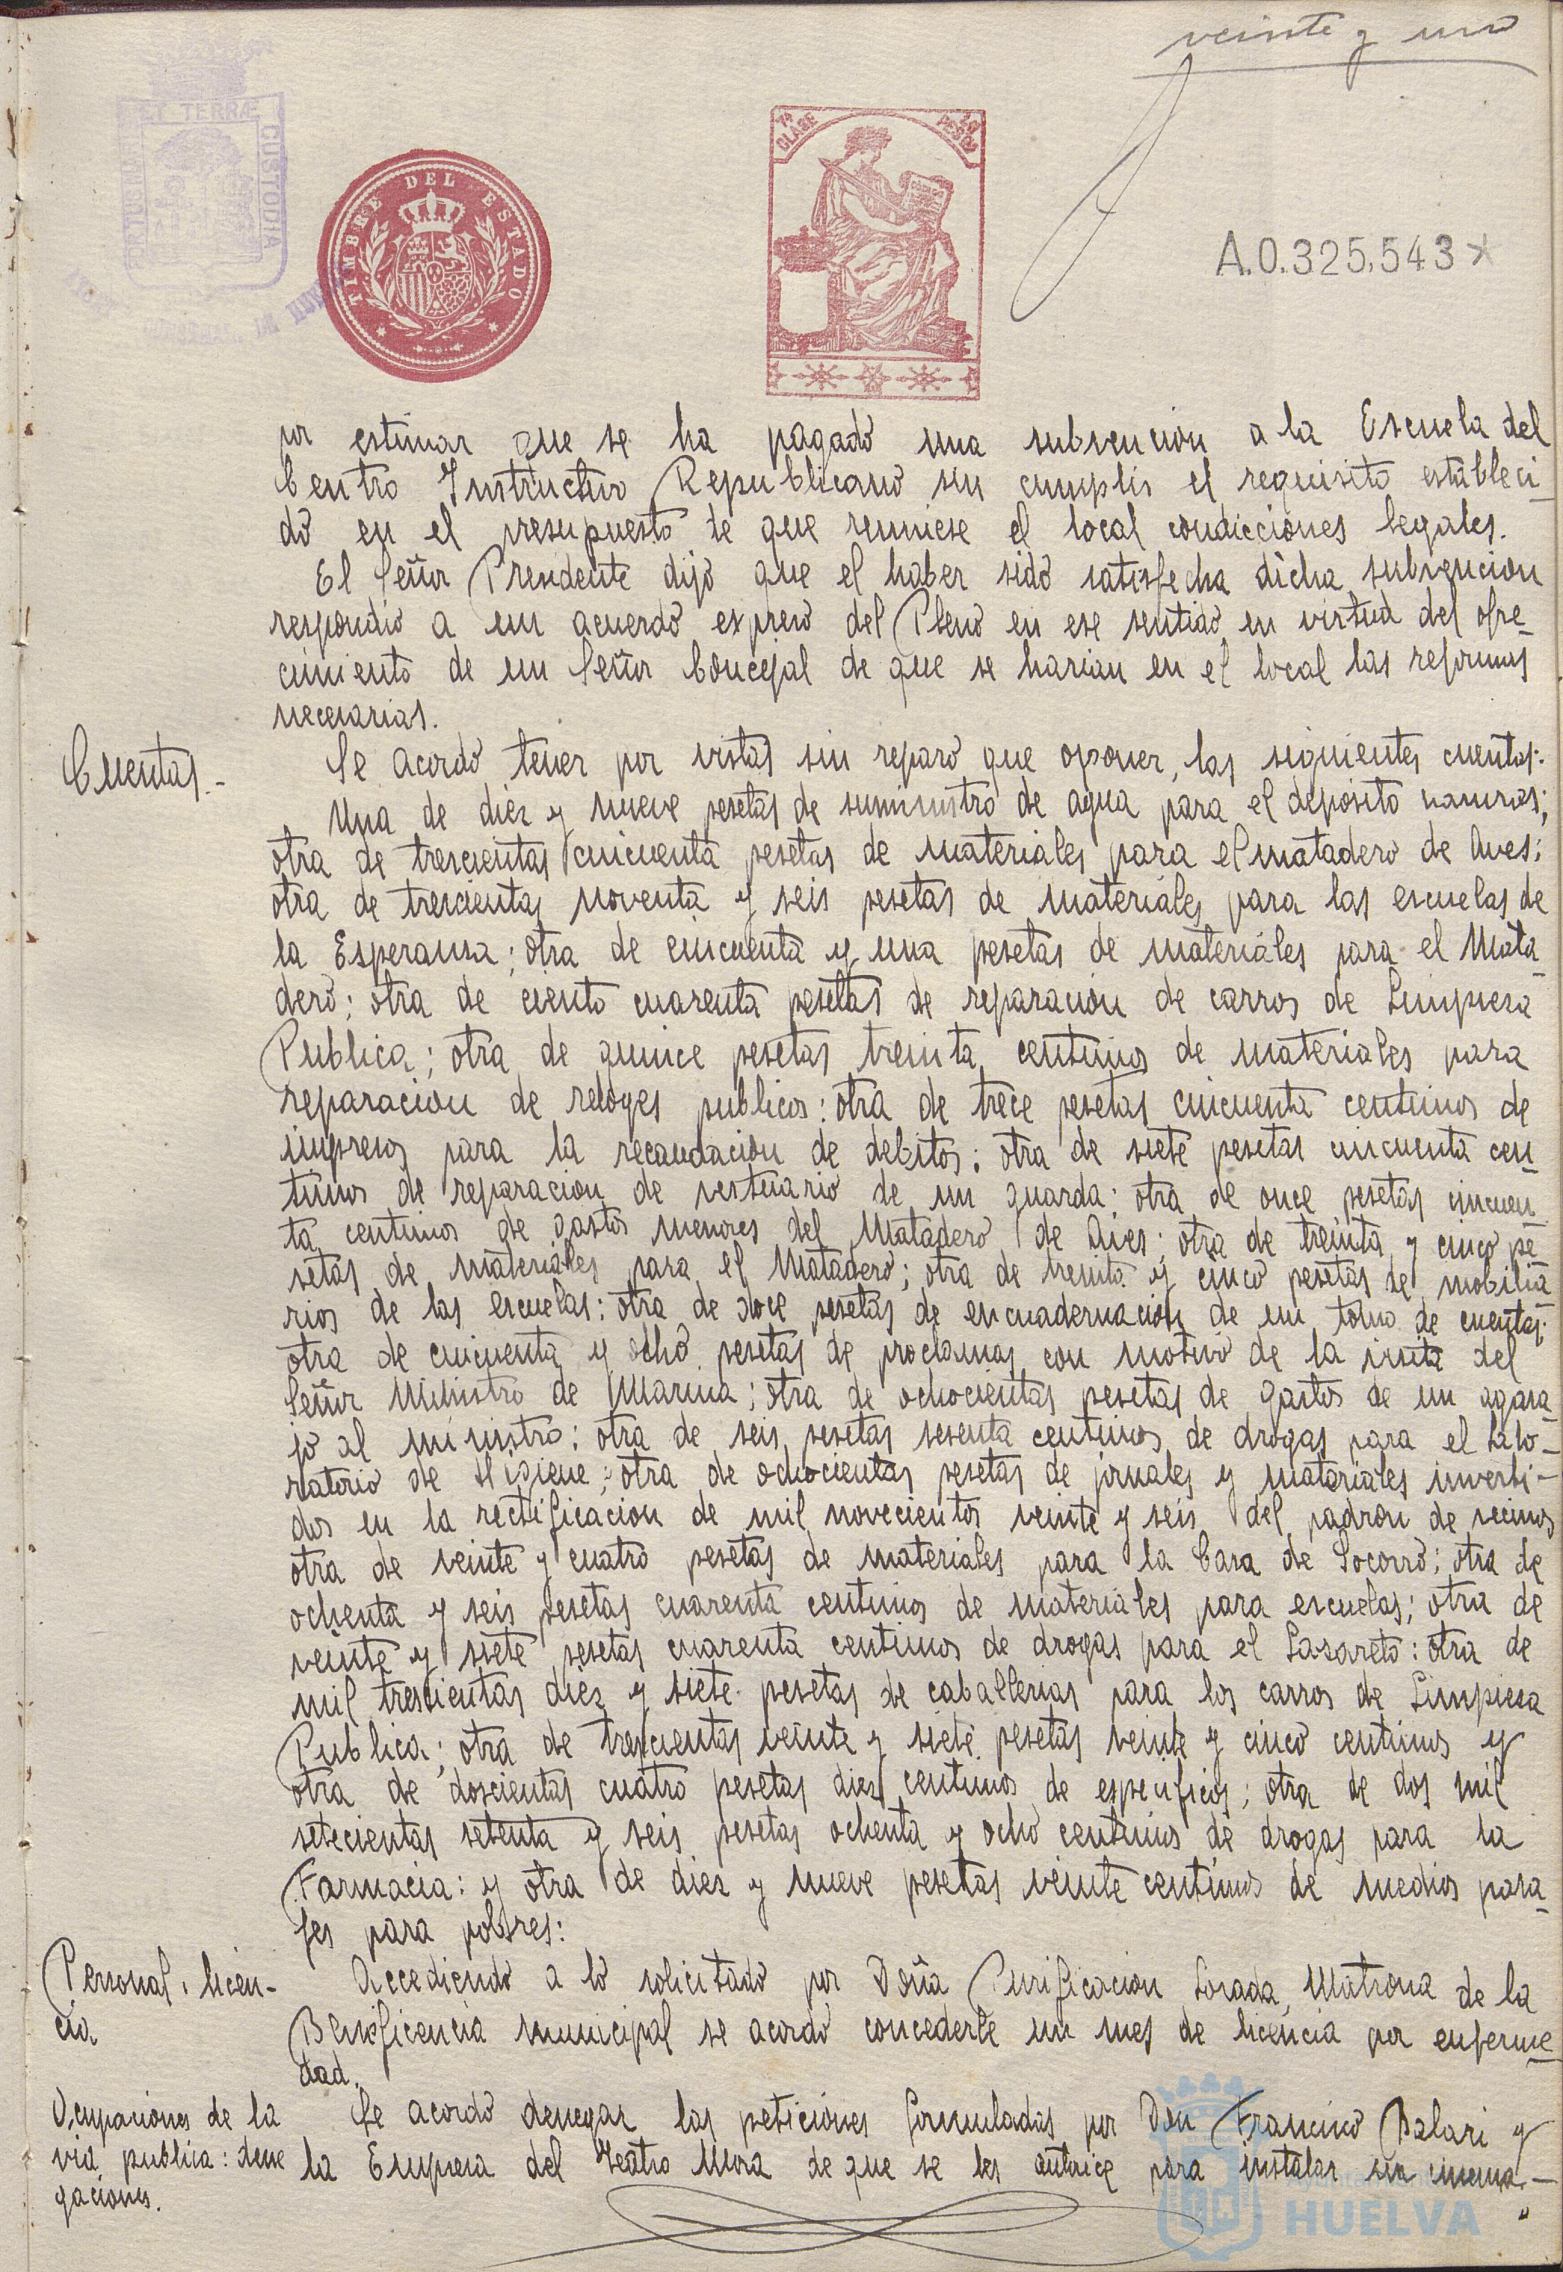 veinte y uno
ET TERRÆ
CUSTODIA
PORTUS
TIMBRE DEL ESTADO
7ª CLASE
A.0.325,543*
por estimar que se ha pagado una subvencion a la Escuela del
Centro Instructivo Republicano sin cumplir el requisito estableci-
do en el presupuesto de que reuniese el local condicciones legales.
El Señor Presidente dijo que el haber sido satisfecha dicha subvencion
respondio a un acuerdo expreso del Pleno en ese sentido en virtud del ofre-
cimiento de un Señor Concejal de que se harian en el local las reformas
necesarias.
Cuentas.-
Se acordó tener por vistas sin reparo que oponer, las siguientes cuentas:
Una de diez y nueve pesetas de suministro de agua para el deposito
otra de trescientas cincuenta pesetas de materiales para el matadero de Aves;
otra de trescientas noventa y seis pesetas de materiales para las escuelas de
la Esperanza; otra de cincuenta y una pesetas de materiales para el Mata-
dero; otra de ciento cuarenta pesetas de reparacion de carros de Limpieza
Publica; otra de quince pesetas treinta centimos de materiales para
reparacion de reloges publicos: otra de trece pesetas cincuenta centimos de
impresos para la recaudacion de debitos; otra de siete pesetas cincuenta cen-
timos de reparacion de vestuario de un guarda; otra de once pesetas cincuen-
ta centimos de gastos menores del Matadero de Aves; otra de treinta y cinco pe-
setas de materiales para el Matadero; otra de treinta y cinco pesetas de mobilia-
rios de las escuelas: otra de doce pesetas de encuadernacion de un tomo de cuentas;
otra de cincuenta y ocho pesetas de proclamas con motivo de la visita del
Señor Ministro de Marina; otra de ochocientas pesetas de gastos de un agasa-
jo al ministro; otra de seis pesetas sesenta centimos de drogas para el Labo-
ratorio de Higiene; otra de ochocientas pesetas de jornales y materiales inverti-
dos en la rectificacion de mil novecientos veinte y seis del padron de vecinos
otra de veinte y cuatro pesetas de materiales para la Casa de Socorro; otra de
ochenta y seis pesetas cuarenta centimos de materiales para escuelas; otra de
veinte y siete pesetas cuarenta centimos de drogas para el Lazareto: otra de
mil trescientas diez y siete pesetas de caballerias para los carros de Limpieza
Publica; otra de trescientas veinte y siete pesetas veinte y cinco centimos y
otra de doscientas cuatro pesetas diez centimos de especificos; otra de dos mil
setecientas setenta y seis pesetas ochenta y ocho centimos de drogas para la
Farmacia: y otra de diez y nueve pesetas veinte centimos de medios pasa-
jes para pobres:
Personal, licen-
cia
Accediendo a lo solicitado por Doña Purificacion Losada, Matrona de la
Beneficencia municipal se acordó concederle un mes de licencia por enferme-
dad.
Ocupaciones de la
via publica: dene
gaciones.
Se acordó denegar las peticiones formuladas por Don Francisco Balari y
la Empresa del Teatro Mora de que se les autorice para instalar sin cinema-
Ayuntamiento
HUELVA